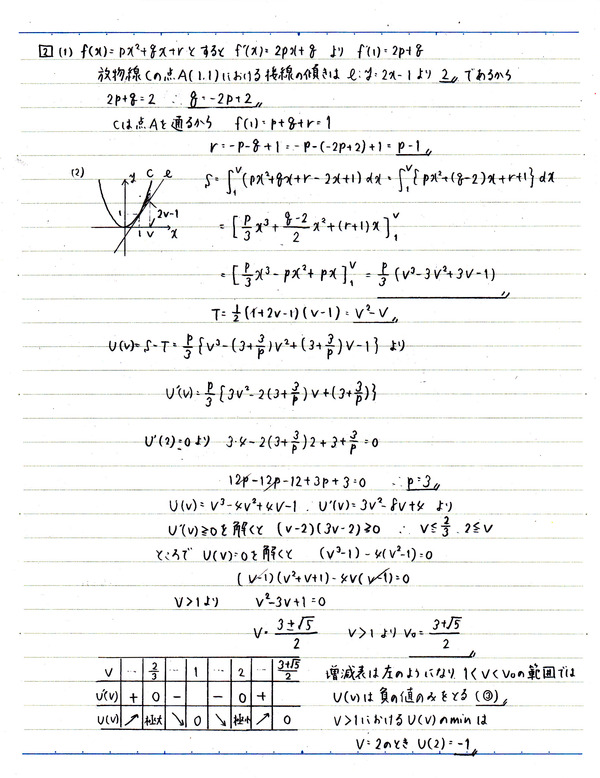 2 (1) f(x)=px²+qx+r とすると f'(x)=2px+q より f'(1)=2p+q
放物線Cの点A(1,1)における接線の傾きは ℓ:y=2x-1より 2 であるから
2p+q=2 ∴ q=-2p+2
Cは点Aを通るから f(1)=p+q+r=1
r=-p-q+1=-p-(-2p+2)+1=p-1
(2)
y C ℓ
1 2v-1
1 v x
S=∫₁^v(px²+qx+r-2x+1)dx=∫₁^v{px²+(q-2)x+r+1}dx
=[p/3 x³+(q-2)/2 x²+(r+1)x]₁^v
=[p/3 x³-px²+px]₁^v=p/3(v³-3v²+3v-1)
T=1/2(1+2v-1)(v-1)=v²-v
U(v)=S-T=p/3{v³-(3+3/p)v²+(3+3/p)v-1} より
U'(v)=p/3{3v²-2(3+3/p)v+(3+3/p)}
U'(2)=0より 3・4-2(3+3/p)2+3+3/p=0
12p-12p-12+3p+3=0 ∴p=3
U(v)=v³-4v²+4v-1 . U'(v)=3v²-8v+4 より
U'(v)≥0を解くと (v-2)(3v-2)≥0 ∴ v≤2/3, 2≤v
ところで U(v)=0を解くと (v³-1)-4(v²-1)=0
(v-1)(v²+v+1)-4v(v-1)=0
v>1より v²-3v+1=0
v=(3±√5)/2 v>1より v₀=(3+√5)/2
v … 2/3 … 1 … 2 … (3+√5)/2
U'(v) + 0 - - 0 +
U(v) ↗ 極大 ↘ 0 ↘ 極小 ↗ 0
増減表は左のようになり 1<v<v₀の範囲では
U(v)は負の値のみをとる (③)
v>1におけるU(v)のminは
v=2のとき U(2)=-1